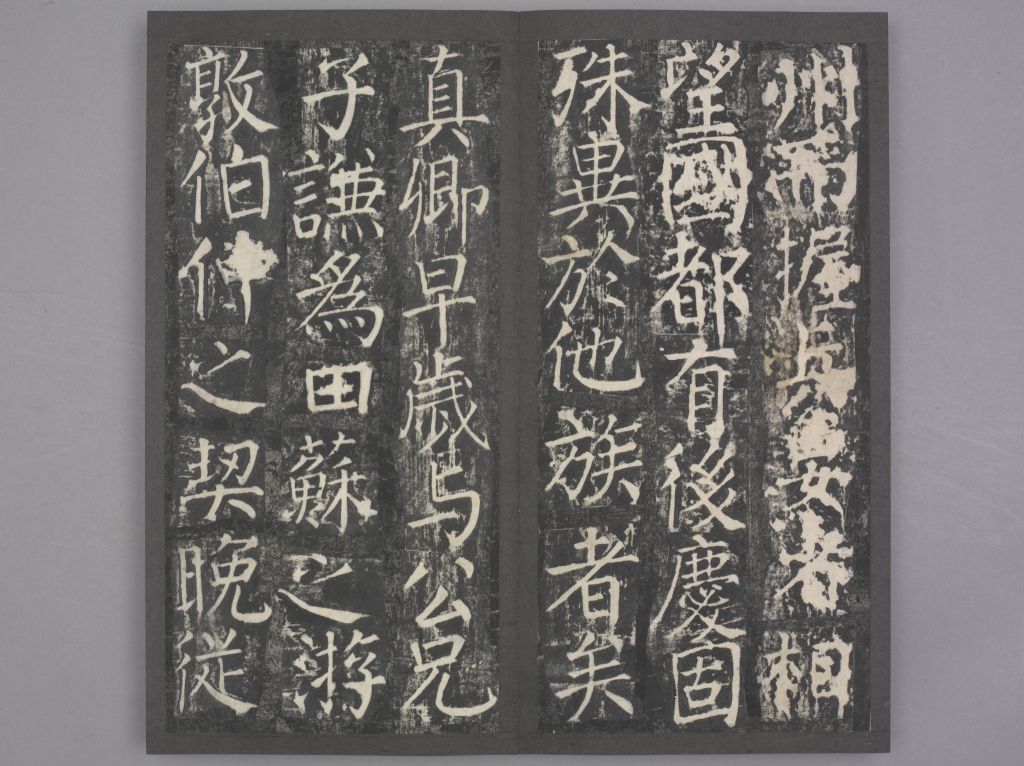 州而握兵要者相
望國都有後慶固
殊異於他族者矣
真卿早歲与公兄
子謙為田蘇之游
敦伯仲之契晚從